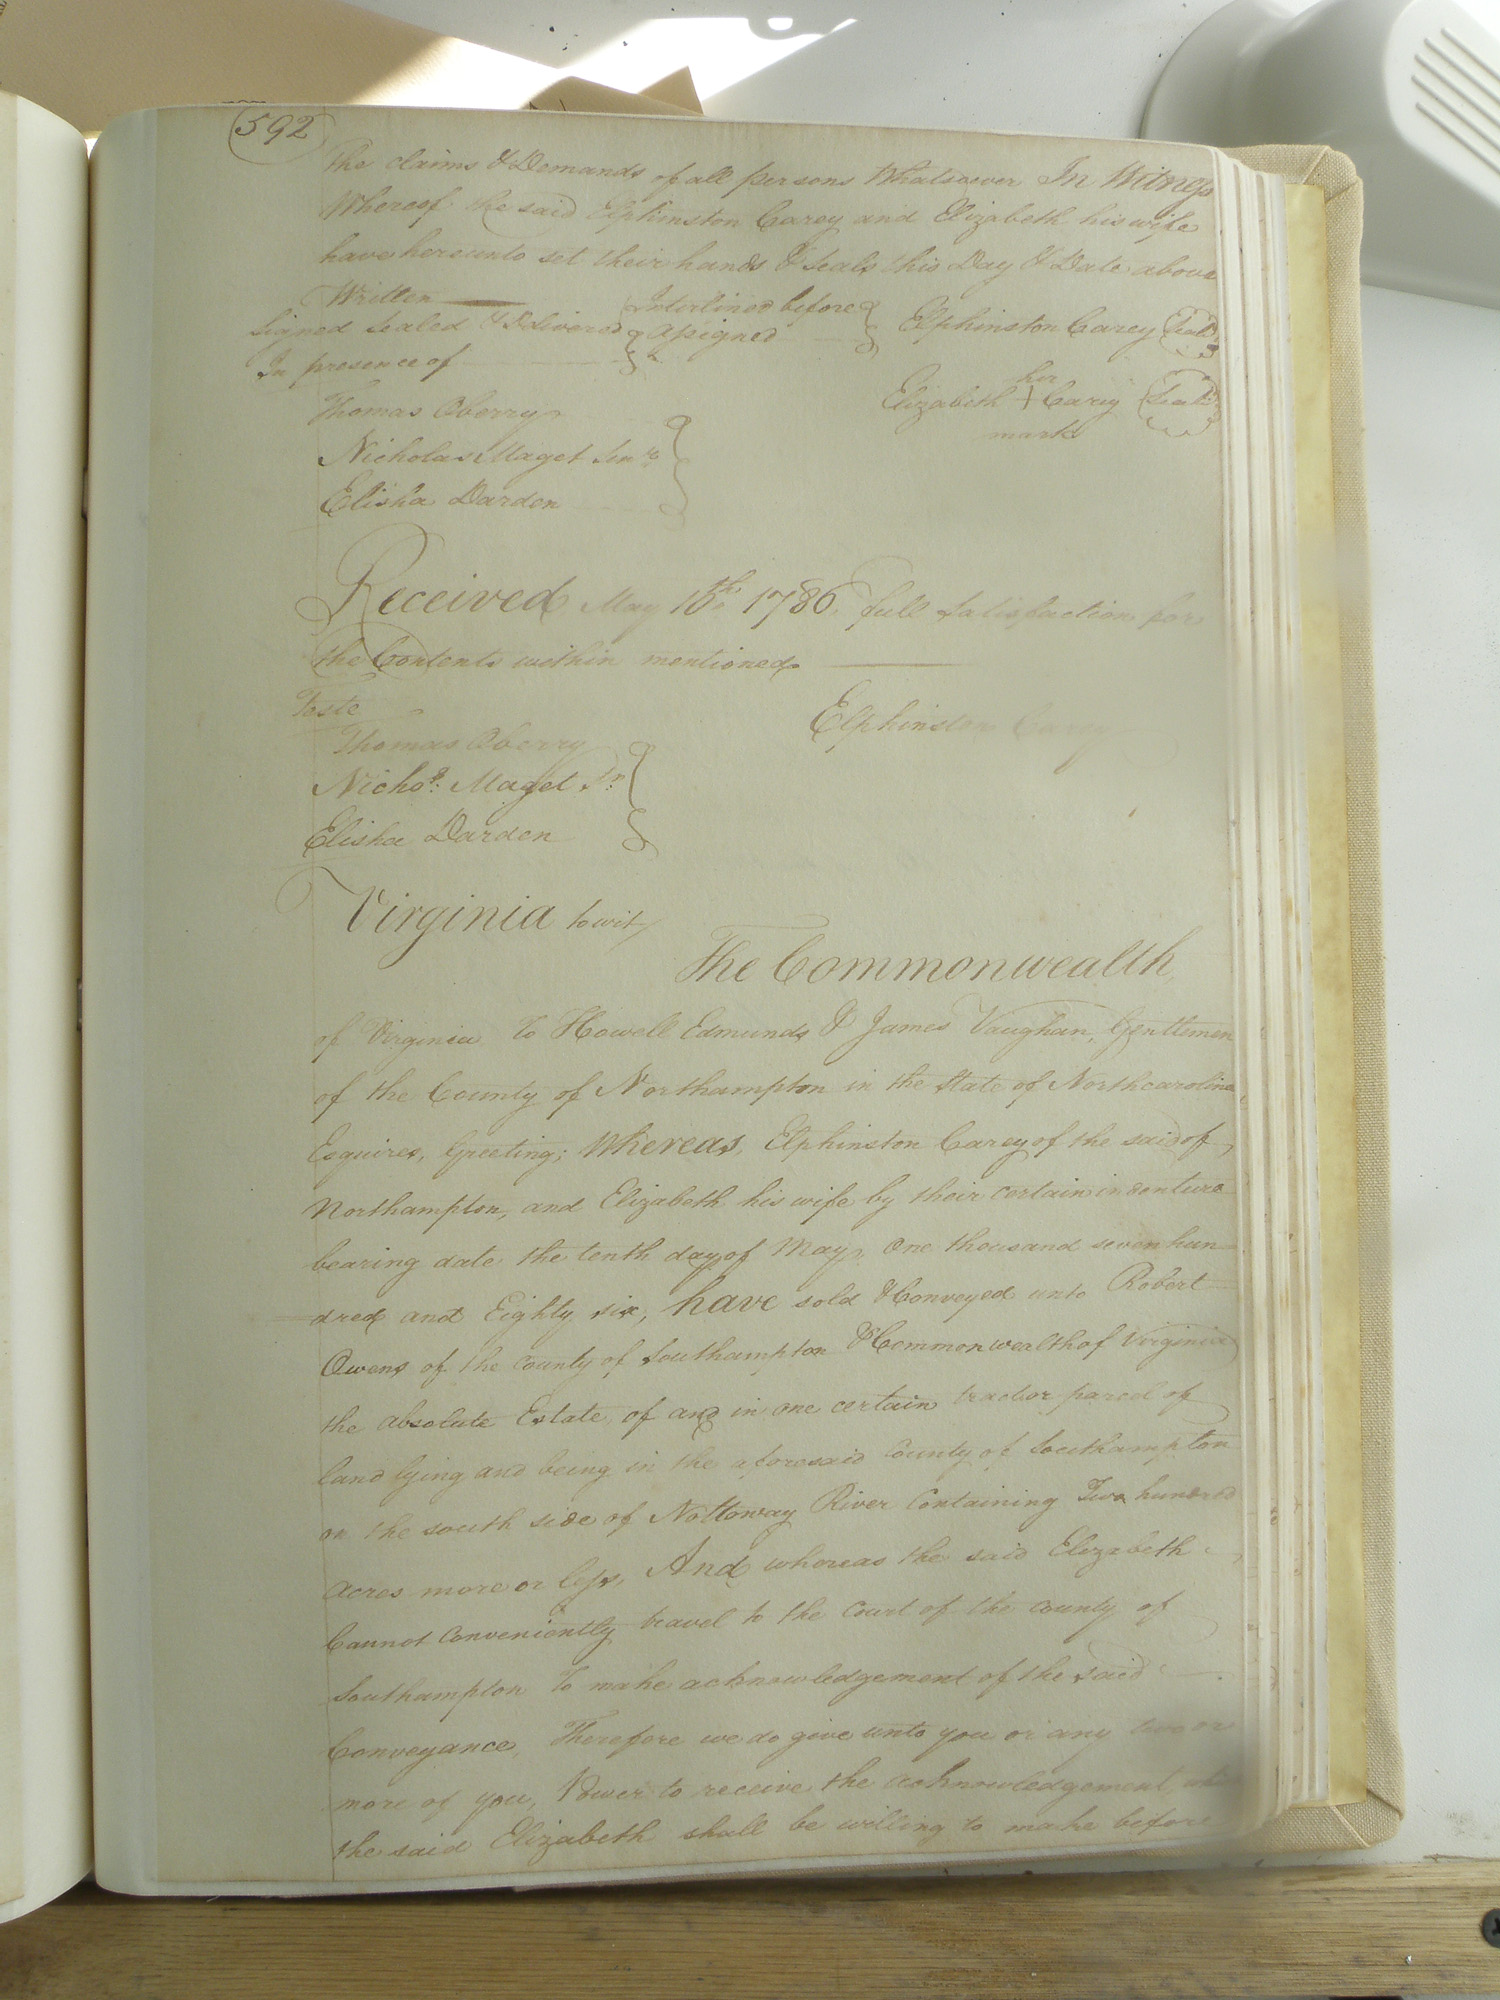 592
the claims & Demands of all persons Whatsoever In Witness
Whereof the said Elphinston Carey and Elizabeth his wife
have hereunto set their hands & seals this Day & Date above
Written
Signed Sealed & Delivered } Interlined before } Elphinston Carey (Seal)
In presence of } assigned
her
Elizabeth + Carey (Seal)
mark
Thomas Oberry
Nicholas Maget Senr
Elisha Darden
Received May 10th 1786 full satisfaction for
the Contents within mentioned
Teste
Elphinston Carey
Thomas Oberry
Nichos. Maget Sr
Elisha Darden
Virginia towit,
The Commonwealth,
of Virginia To Howell Edmunds & James Vaughan, Gentlemen
of the County of Northampton in the State of Northcarolina
Esquires, Greeting; Whereas, Elphinston Carey of the said of
Northampton, and Elizabeth his wife by their certain indenture
bearing date the tenth day of May, One thousand seven hun-
dred and Eighty six, have sold & Conveyed unto Robert
Owens of the County of Southampton & Commonwealth of Virginia
the absolute Estate, of and in one certain tract or parcel of
land lying and being in the aforesaid County of Southampton
on the south side of Nottoway River Containing Two hundred
acres more or less, And whereas the said Elizabeth
Cannot Conveniently travel to the Court of the County of
Southampton To make acknowledgement of the said
Conveyance, Therefore we do give unto you or any two or
more of you, Power to receive the acknowledgement,
the said Elizabeth shall be willing to make before